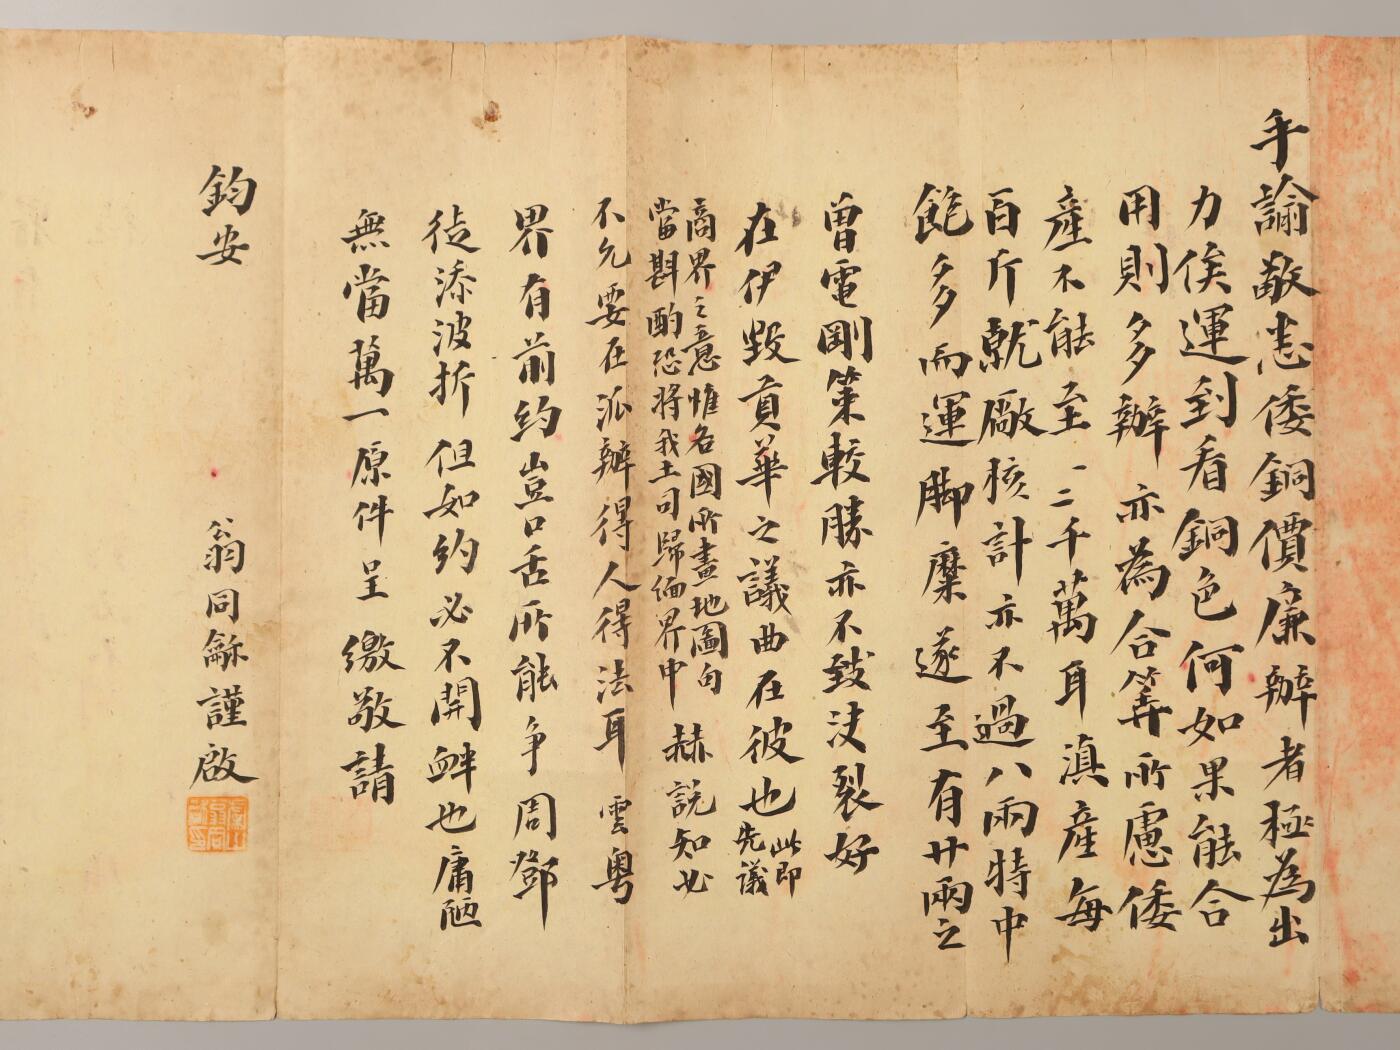 手諭敬悉倭銅價廉辦者極為出
力俟運到看銅色何如果能合
用則多辦亦為合算所慮倭
產不能至一二千萬耳滇產每
百斤就廠核計亦不過八兩特中
飽多而運脚糜遂至有廿兩之
曾電剛策較勝亦不致決裂好
在伊毀貢華之議曲在彼也此即
先議
商界之意惟各國所畫地圖句
當斟酌恐將我土司歸緬界中
赫說知必
不允要在派辦得人得法耳雲粵
界有前約豈口舌所能爭周鄧
徒添波折但如約必不開衅也庸陋
無當萬一原件呈繳敬請
鈞安
翁同龢謹啟